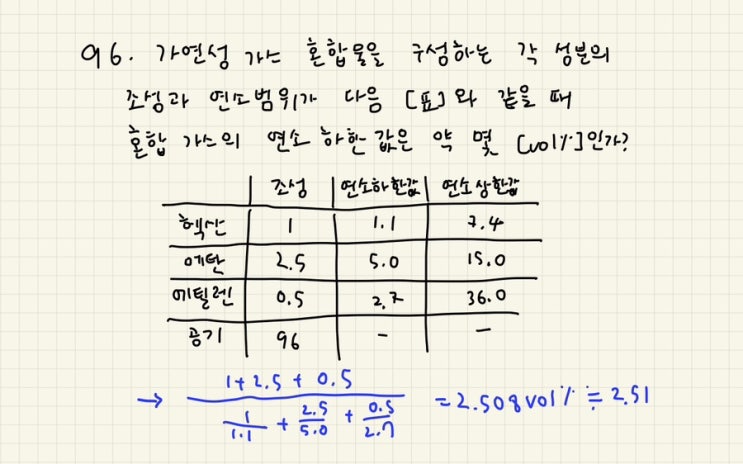 96. 가연성 가스 혼합물을 구성하는 각 성분의
조성과 연소범위가 다음 [표]와 같을 때
혼합 가스의 연소 하한값은 약 몇 [vol%]인가?
조성 연소하한값 연소상한값
헥산 1 1.1 7.4
메탄 2.5 5.0 15.0
에틸렌 0.5 2.7 36.0
공기 96 - -
→ (1+2.5+0.5) / (1/1.1 + 2.5/5.0 + 0.5/2.7) = 2.508vol% ≒ 2.51